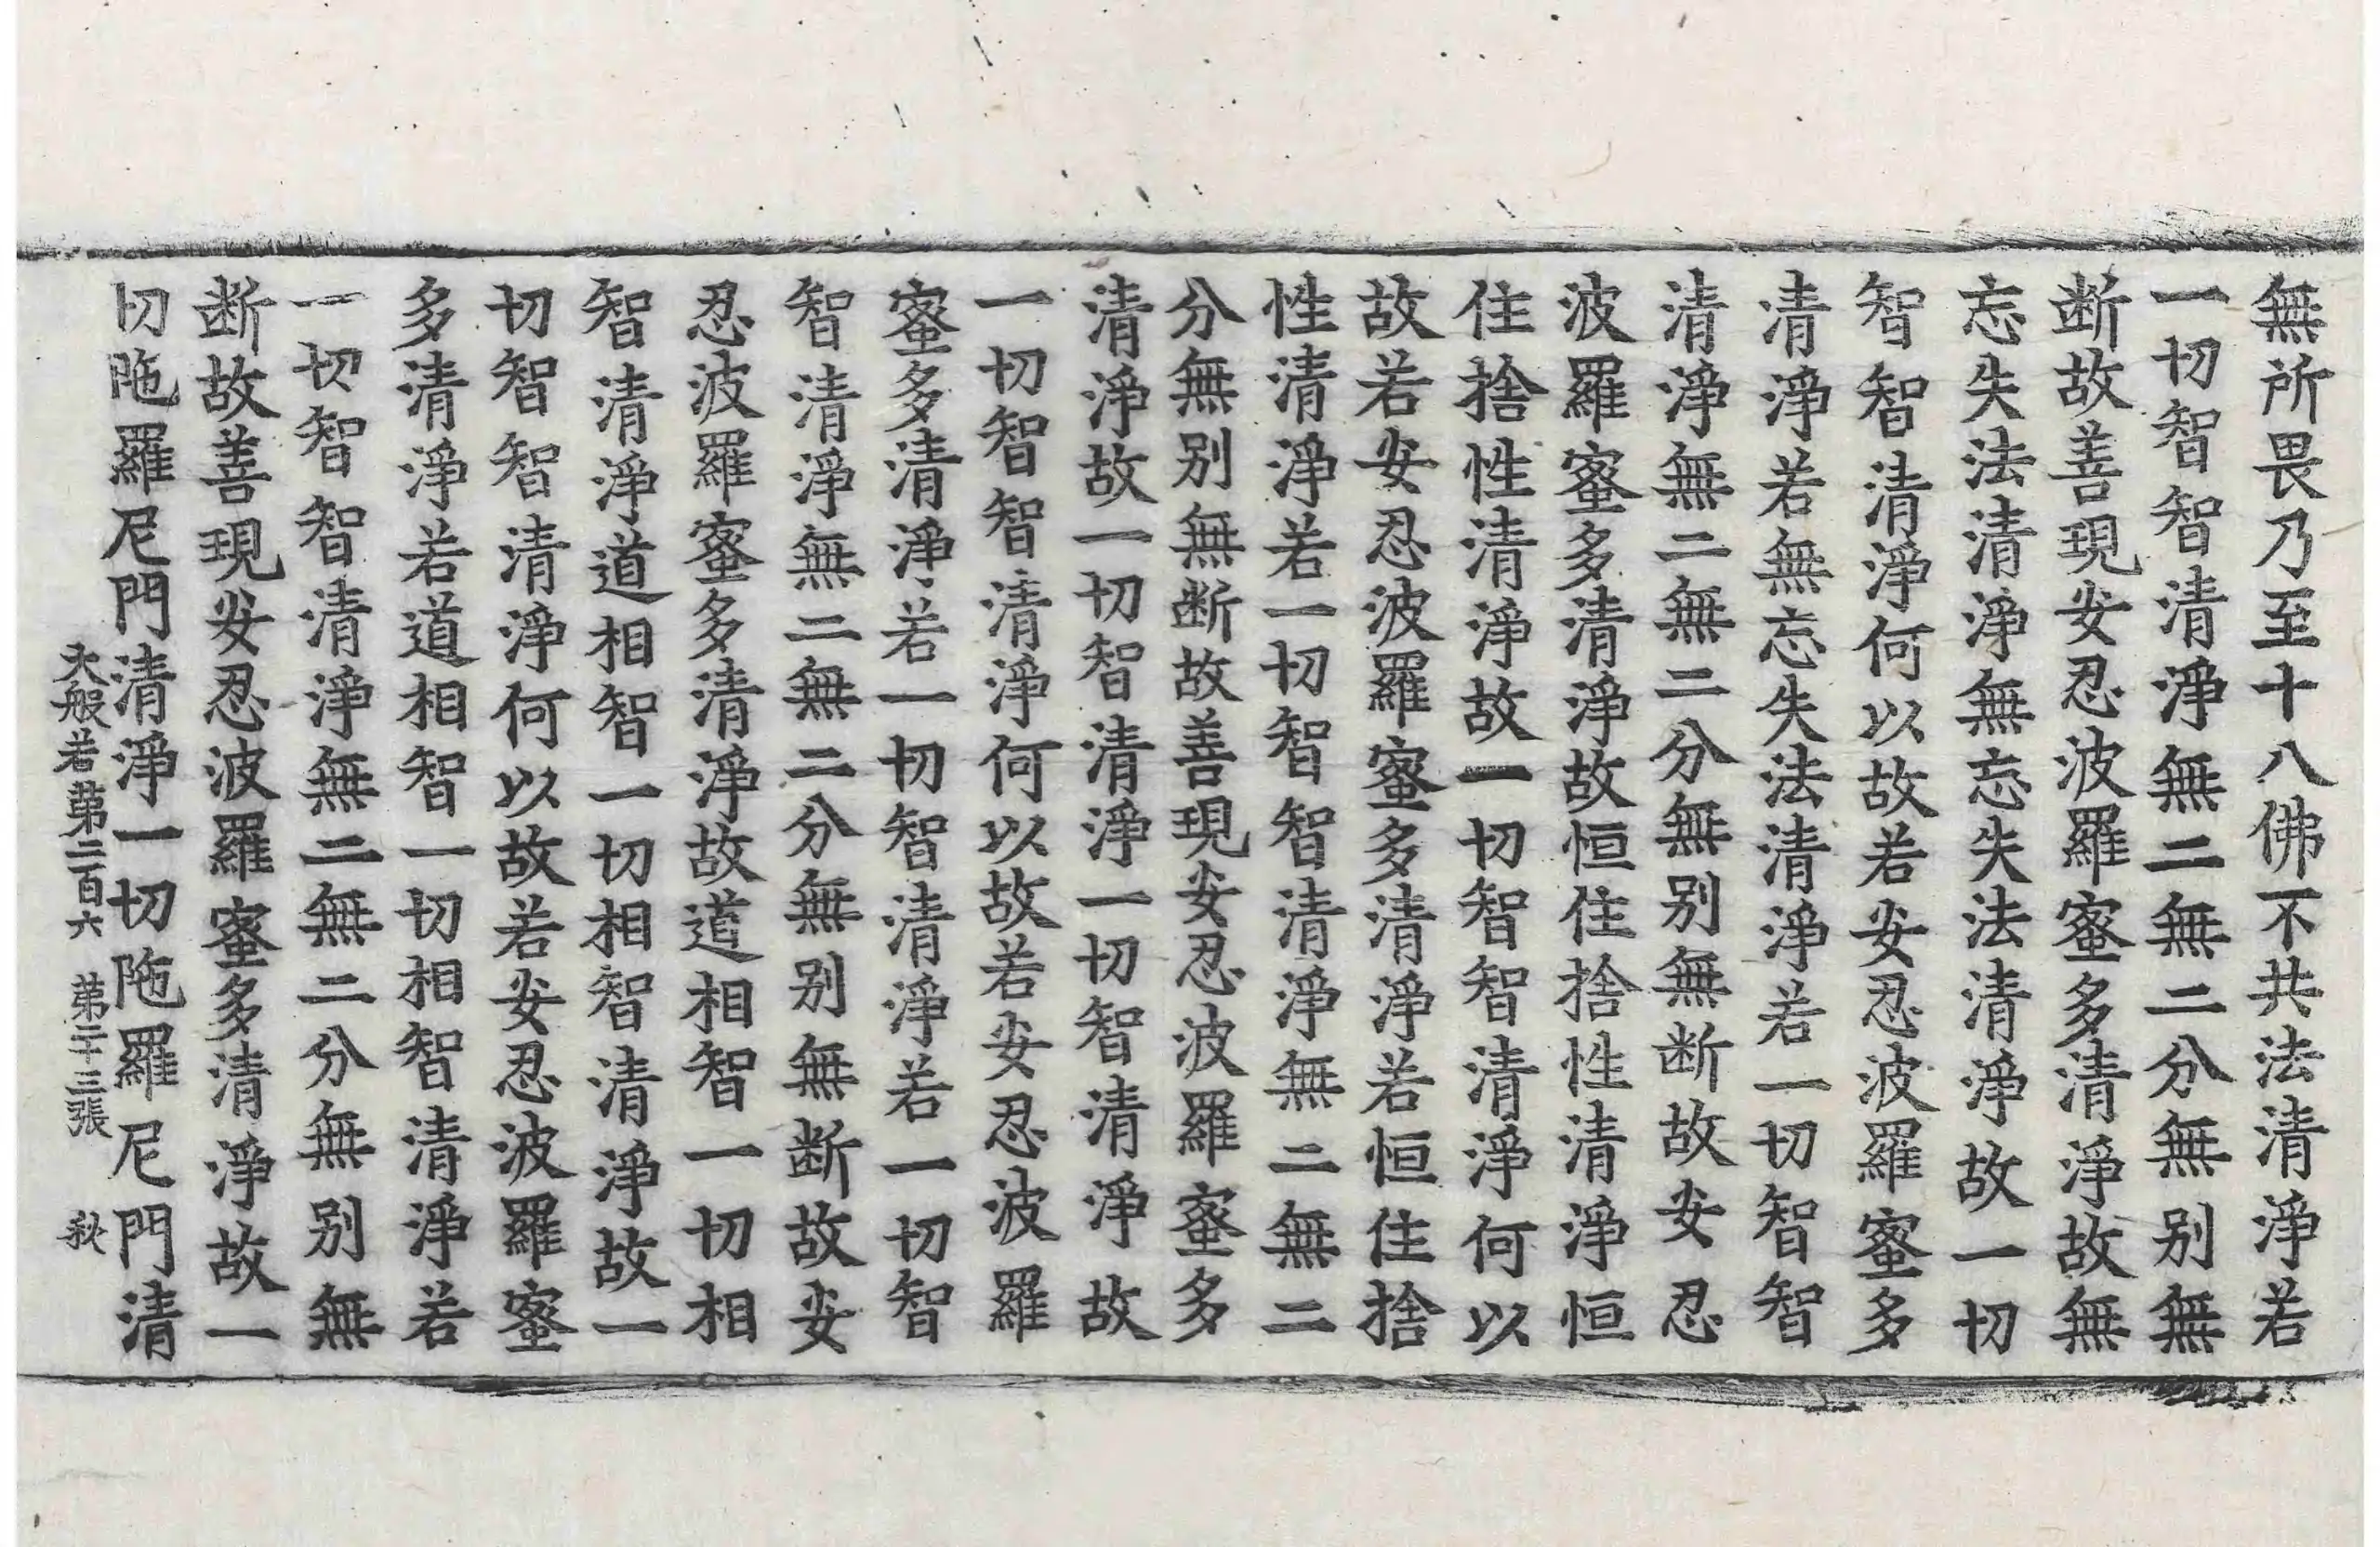 無所畏乃至十八佛不共法清淨若
一切智智清淨無二無二分無别無
断故善現安忍波羅蜜多清淨故無
忘失法清淨無忘失法清淨故一切
智智清淨何以故若安忍波羅蜜多
清淨若無忘失法清淨若一切智智
清淨無二無二分無别無断故安忍
波羅蜜多清淨故恒住捨性清淨恒
住捨性清淨故一切智智清淨何以
故若安忍波羅蜜多清淨若恒住捨
性清淨若一切智智清淨無二無二
分無别無断故善現安忍波羅蜜多
清淨故一切智清淨一切智清淨故
一切智智清淨何以故若安忍波羅
蜜多清淨若一切智清淨若一切智
智清淨無二無二分無别無断故安
忍波羅蜜多清淨故道相智一切相
智清淨道相智一切相智清淨故一
切智智清淨何以故若安忍波羅蜜
多清淨若道相智一切相智清淨若
一切智智清淨無二無二分無别無
断故善現安忍波羅蜜多清淨故一
切陁羅尼門清淨一切陁羅尼門清
大般若第二百六 第二十三張 秋